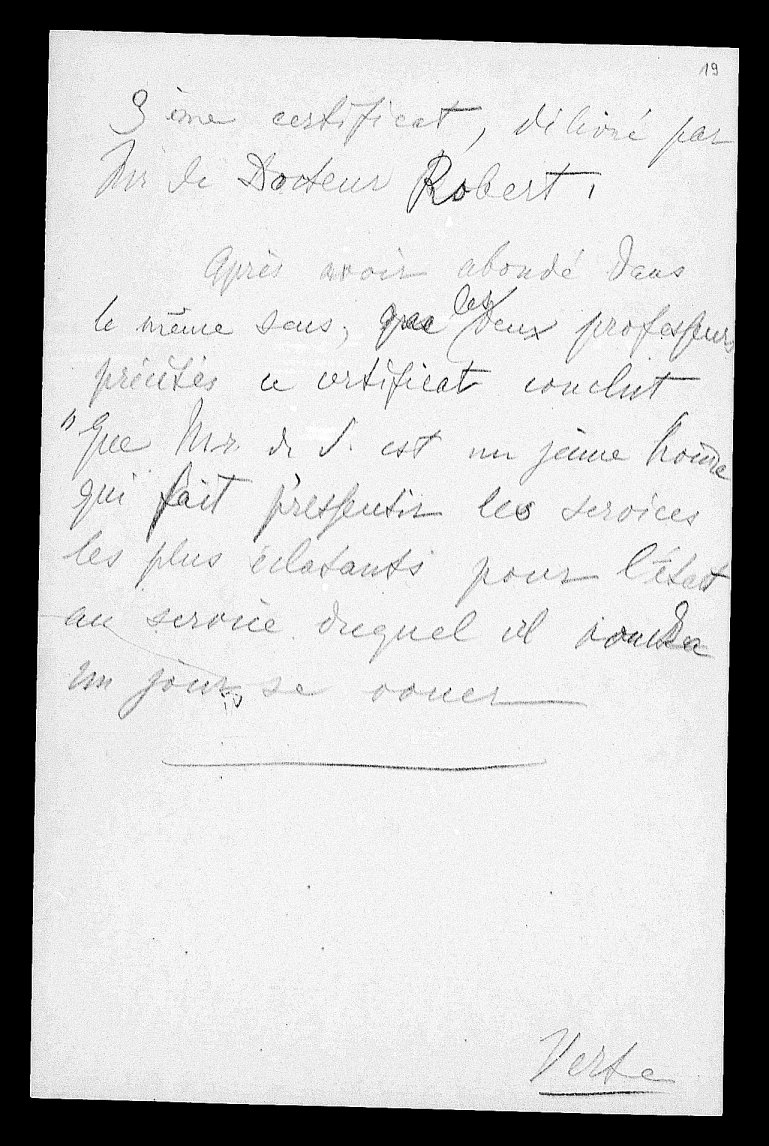 19
3ème certificat, délivré par
Mr le Docteur Robert.
Après avoir abondé dans
le même sens, que les deux professeurs
précités ce certificat conclut
"que Mr. de S. est un jeune homme
qui fait pressentir les services
les plus éclatants pour l'état
au service duquel il voudra
un jour se vouer
Verte